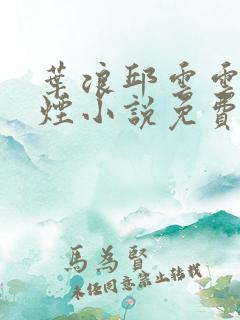 葉浪邱雲雲
煙小說免費
馬為賢
未經同意禁止轉載